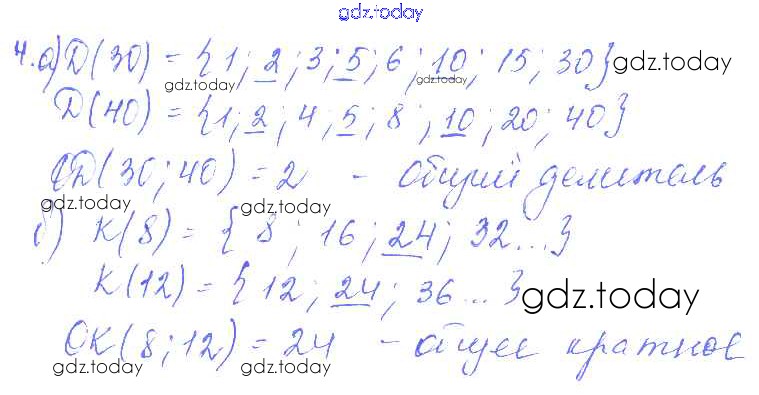 gdz.today
4. а) Д(30) = {1; 2; 3; 5; 6; 10; 15; 30} gdz.today
gdz.today gdz.today
Д(40) = {1; 2; 4; 5; 8; 10; 20; 40}
ОД(30; 40) = 2 - общий делитель
gdz.today gdz.today
б) К(8) = { 8 ; 16 ; 24; 32...}
К(12) = {12; 24; 36...} gdz.today
ОК(8; 12) = 24 - общее кратное
gdz.today gdz.today